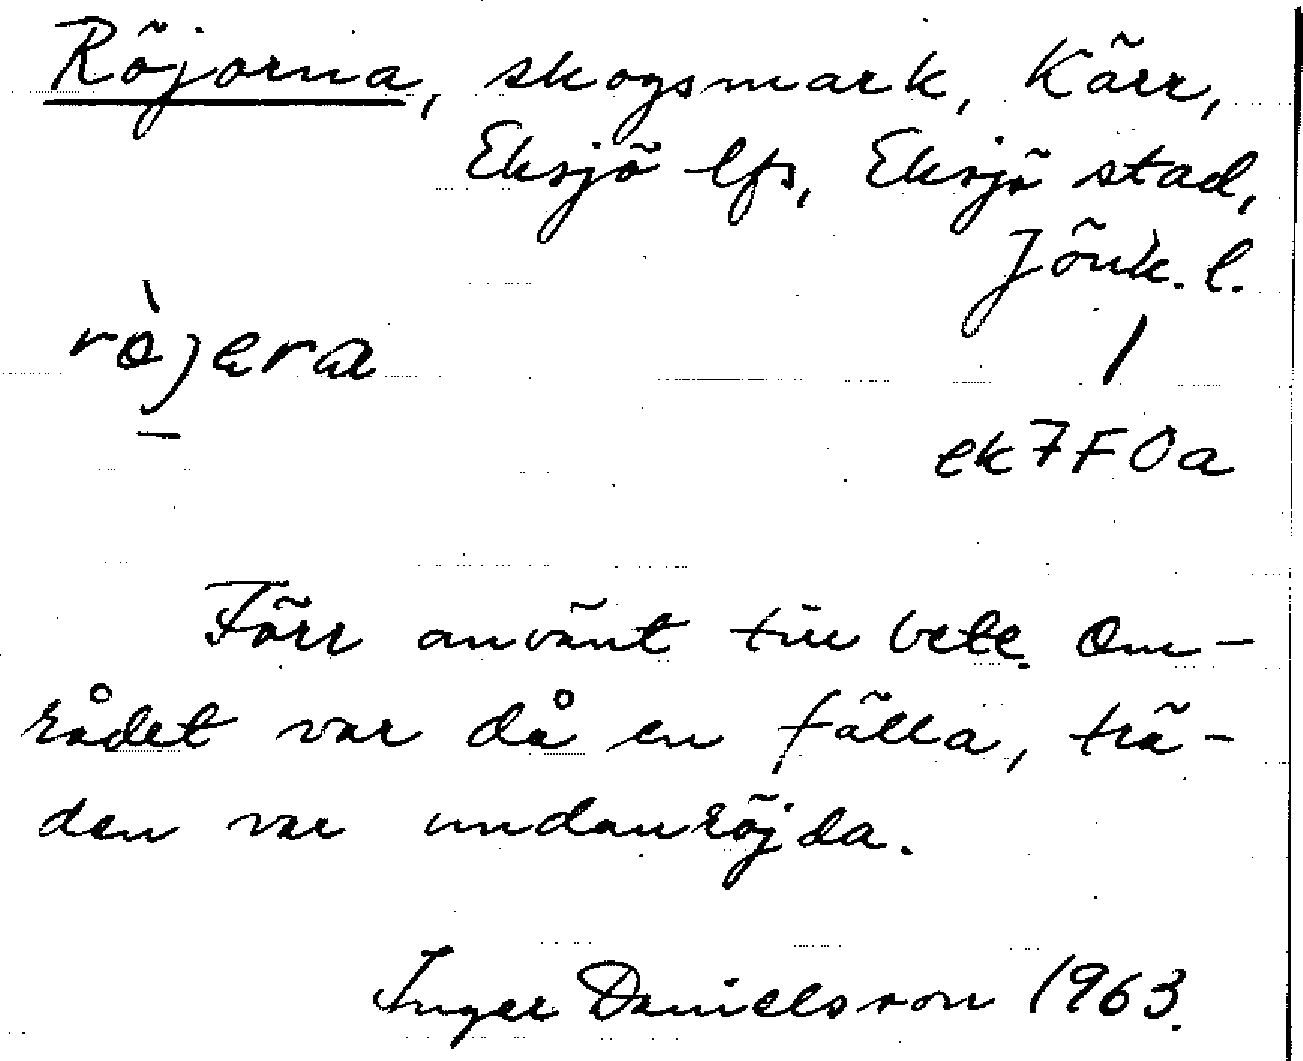 Röjorna, skogsmark, Kärr,
Eksjö lfs, Eksjö stad,
Jönk. l.
ròjera
/
ek7F0a
Förr använt till bete. Om-
rådet var då en fälla, trä-
den var undanröjda.
Inger Danielsson 1963.